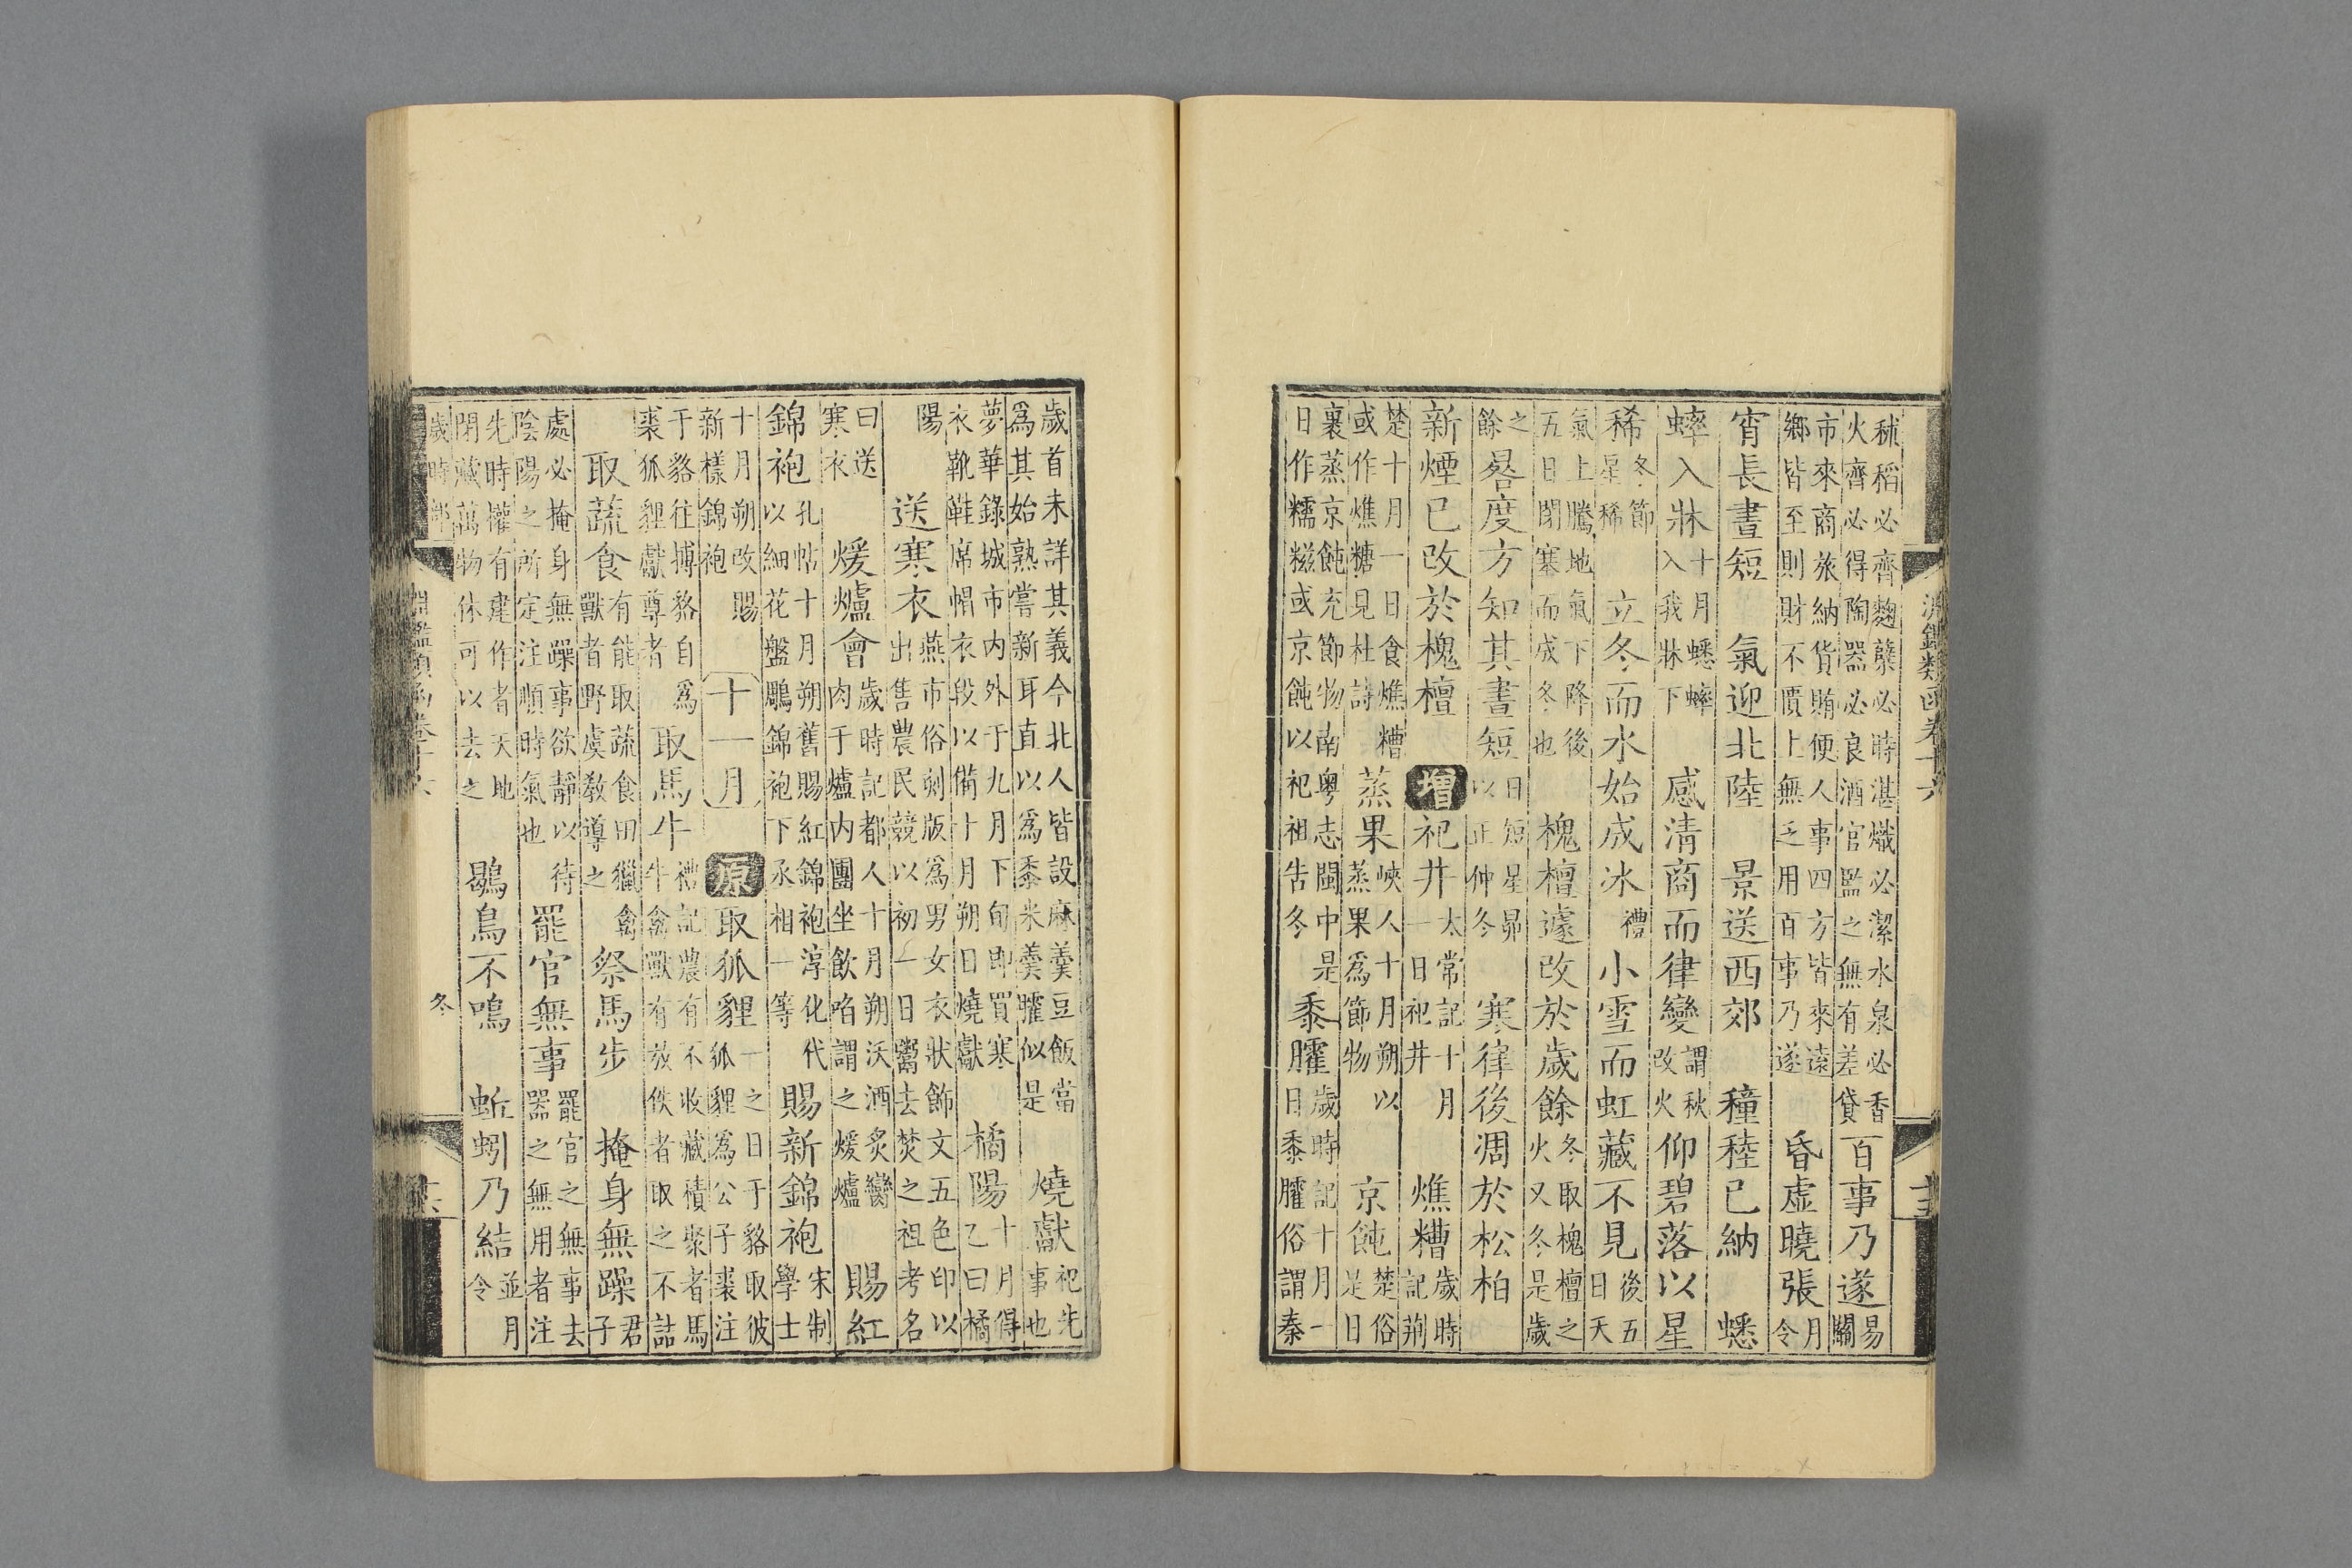 淵鑑類函卷十六 十五
秫稻必齊麴糵必時湛熾必潔水泉必香
火齊必得陶器必良酒官監之無有差貸
百事乃遂
易關
市來商旅納貨賄便人事四方皆來遠
鄉皆至則財不匱上無乏用百事乃遂
昏虛曉張
月令
宵長晝短 氣迎北陸 景送西郊 穜稑已納 蟋
蟀入牀
十月蟋蟀
入我牀下
感清商而律變
謂秋
改火
仰碧落以星
稀
冬節
星稀
立冬而水始成冰
禮
小雪而虹藏不見
後五
日天
氣上騰地氣下降後
五日閉塞而成冬也
槐檀遽改於歲餘
冬取槐檀之
火又冬是歲
之
餘
晷度方知其晝短
日短星昴
以正仲冬
寒律後凋於松柏
新煙已改於槐檀
增
祀井
太常記十月
一日祀井
燋糟
歲時
記荊
楚十月一日食燋糟
或作燋糖見杜詩
蒸果
峽人十月朔以
蒸果為節物
京飩
楚俗
是日
裹蒸京飩充節物南粵志閩中是
日作糯糍或京飩以祀祖告冬
黍臛
歲時記十月一
日黍臛俗謂秦
歲首未詳其義今北人皆設麻羹豆飯當
為其始熟嘗新耳直以為黍米羹臛似是
燒獻
祀先
事也
夢華錄城市內外于九月下旬即買寒
衣靴鞋席帽衣段以備十月朔日燒獻
橘陽
十月得
乙曰橘
陽
送寒衣
燕市俗刻版為男女衣狀飾文五色印以
出售農民競以初一日鬻去焚之祖考名
曰送
寒衣
煖爐會
歲時記都人十月朔沃酒炙臠
肉于爐內團坐飲啗謂之煖爐
賜紅
錦袍
孔帖十月朔舊賜紅錦袍淳化代
以細花盤鵰錦袍下丞相一等
賜新錦袍
宋制
學士
十月朔改賜
新樣錦袍
十一月
原
取狐貍
一之日于貉取彼
狐貍為公子裘注
于貉往搏貉自為
裘狐貍獻尊者
取馬牛
禮記農有不收藏積聚者馬
牛禽獸有放佚者取之不詰
取蔬食
有能取蔬食田獵禽
獸者野虞教導之
祭馬步 掩身無躁
君
子
處必掩身無躁事欲靜以待
陰陽之所定注順時氣也
罷官無事
罷官之無事去
器之無用者注
先時權有建作者天地
閉藏萬物休可以去之
鶡鳥不鳴 蚯蚓乃結
並月
令
歲時部 淵鑑類函卷十六 冬 十六